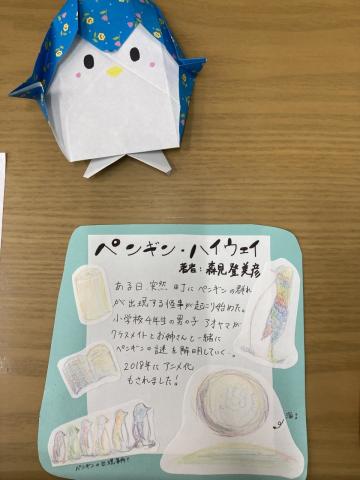 ペンギン・ハイウェイ
著者：森見登美彦
ある日、突然 町にペンギンの群れ
が出現する怪事が起こり始めた。
小学校4年生の男の子 アオヤマが
クラスメイトとお姉さんと一緒に
ペンギンの謎を解明していく…。
2018年にアニメ化
もされました!